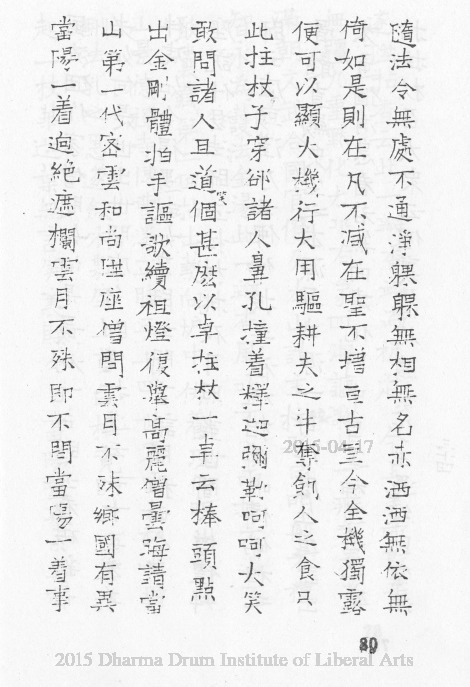 隨法令無處不通淨躶躶無相無名赤洒洒無依無
倚如是則在凡不減在聖不增亘古亘今全機獨露
便可以顯大機行大用驅耕夫之牛奪飢人之食只
此拄杖子穿卻諸人鼻孔撞着釋迦彌勒呵呵大笑
敢問諸人且道笑個甚麽以卓拄杖一卓云棒頭點
出金剛體拍手謳歌續祖燈復舉高麗僧曇海請當
山第一代密雲和尚陞座僧問雲月不殊鄉國有異
當陽一着迥絕遮欄雲月不殊即不問當陽一着事
2015-04-17
80
2015 Dharma Drum Institute of Liberal Arts